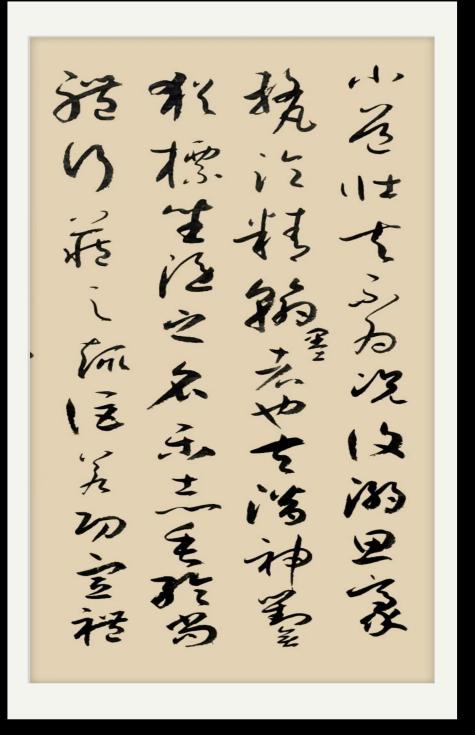 小道壯夫不為況復溺思豪
氂淪精翰墨者也夫潛神對弈
猶標坐隱之名樂志垂綸尚
體行藏之趣詎若功宣禮